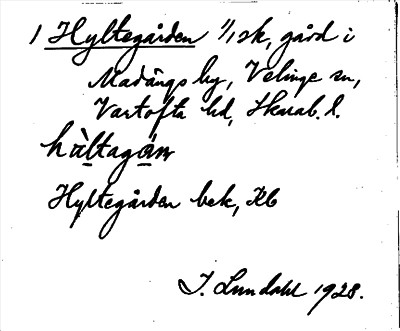 1 Hyltegården 1/1 sk, gård i
Madängs by, Velinge sn,
Vartofta hd, Skarab. l.
hàltagán
Hyltegården bek, Kb
I. Lundahl 1928.